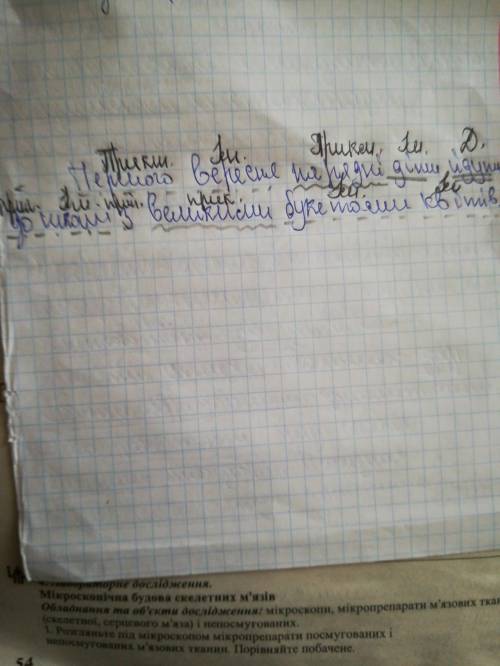 Прикм. Ім. Прикм. Ім. Д.
Першого вересня нарядні діти йдуть
прий. Ім. прий. прик. Ім. Ім.
до школи з великими букетами квітів
Лабораторне дослідження.
Мікроскопічна будова скелетних м'язів
Обладнання та об'єкти дослідження: мікроскопи, мікропрепарати м'язових ткан
(скелетної, серцевого м'яза) і непосмугованих.
1. Розгляньте під мікроскопом мікропрепарати посмугованих і
непосмугованих м'язових тканин. Порівняйте побачене.
54